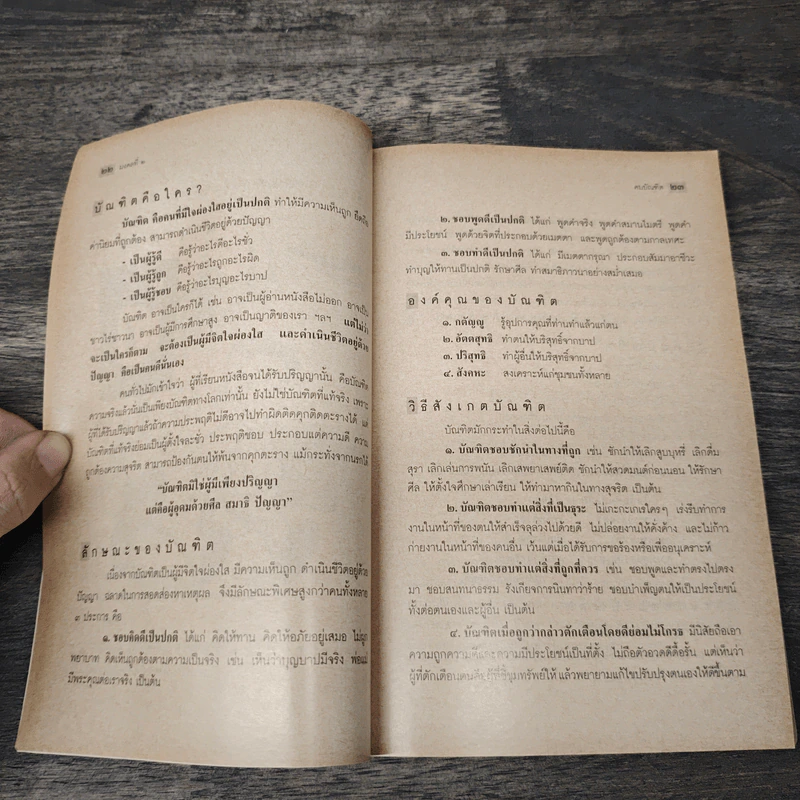 ๒๒ มงคลที่ ๒
บัณฑิตคือใคร?
บัณฑิต คือคนที่มีใจผ่องใสอยู่เป็นปกติ ทำให้มีความเห็นถูก ยึดถือ
ค่านิยมที่ถูกต้อง สามารถดำเนินชีวิตอยู่ด้วยปัญญา
- เป็นผู้รู้ดี คือรู้ว่าอะไรดีอะไรชั่ว
- เป็นผู้รู้ถูก คือรู้ว่าอะไรถูกอะไรผิด
- เป็นผู้รู้ชอบ คือรู้ว่าอะไรบุญอะไรบาป
บัณฑิต อาจเป็นใครก็ได้ เช่น อาจเป็นผู้อ่านหนังสือไม่ออก อาจเป็น
ชาวไร่ชาวนา อาจเป็นผู้มีการศึกษาสูง อาจเป็นญาติของเรา ฯลฯ แต่ไม่ว่า
จะเป็นใครก็ตาม จะต้องเป็นผู้มีจิตใจผ่องใส และดำเนินชีวิตอยู่ด้วย
ปัญญา คือเป็นคนดีนั่นเอง
คนทั่วไปมักเข้าใจว่า ผู้ที่เรียนหนังสือจนได้รับปริญญานั้น คือบัณฑิต
ความจริงแล้วนั่นเป็นเพียงบัณฑิตทางโลกเท่านั้น ยังไม่ใช่บัณฑิตที่แท้จริง เพราะ
ผู้ที่ได้รับปริญญาแล้วถ้าความประพฤติไม่ดีอาจไปทำผิดติดคุกติดตะรางได้ แต่
บัณฑิตที่แท้จริงย่อมเป็นผู้ตั้งใจละชั่ว ประพฤติชอบ ประกอบแต่ความดี ความ
ถูกต้องความสุจริต สามารถป้องกันตนให้พ้นจากคุกตะราง แม้กระทั่งจากนรกได้
“บัณฑิตมิใช่ผู้มีเพียงปริญญา
แต่คือผู้อุดมด้วยศีล สมาธิ ปัญญา”
ลักษณะของบัณฑิต
เนื่องจากบัณฑิตเป็นผู้มีจิตใจผ่องใส มีความเห็นถูก ดำเนินชีวิตอยู่ด้วย
ปัญญา ฉลาดในการสอดส่องหาเหตุผล จึงมีลักษณะพิเศษสูงกว่าคนทั้งหลาย
๓ ประการ คือ
๑. ชอบคิดดีเป็นปกติ ได้แก่ คิดให้ทาน คิดให้อภัยอยู่เสมอ ไม่ผูก
พยาบาท คิดเห็นถูกต้องตามความเป็นจริง เช่น เห็นว่าบุญบาปมีจริง พ่อแม่
มีพระคุณต่อเราจริง เป็นต้น
คบบัณฑิต ๒๓
๒. ชอบพูดดีเป็นปกติ ได้แก่ พูดคำจริง พูดคำสมานไมตรี พูดคำ
มีประโยชน์ พูดด้วยจิตที่ประกอบด้วยเมตตา และพูดถูกต้องตามกาลเทศะ
๓. ชอบทำดีเป็นปกติ ได้แก่ มีเมตตากรุณา ประกอบสัมมาอาชีวะ
ทำบุญให้ทานเป็นปกติ รักษาศีล ทำสมาธิภาวนาอย่างสม่ำเสมอ
องค์คุณของบัณฑิต
๑. กตัญญู รู้อุปการคุณที่ท่านทำแล้วแก่ตน
๒. อัตตสุทธิ ทำตนให้บริสุทธิ์จากบาป
๓. ปริสุทธิ ทำผู้อื่นให้บริสุทธิ์จากบาป
๔. สังคหะ สงเคราะห์แก่ชุมชนทั้งหลาย
วิธีสังเกตบัณฑิต
บัณฑิตมักกระทำในสิ่งต่อไปนี้คือ
๑. บัณฑิตชอบชักนำในทางที่ถูก เช่น ชักนำให้เลิกสูบบุหรี่ เลิกดื่ม
สุรา เลิกเล่นการพนัน เลิกเสพยาเสพย์ติด ชักนำให้สวดมนต์ก่อนนอน ให้รักษา
ศีล ให้ตั้งใจศึกษาเล่าเรียน ให้ทำมาหากินในทางสุจริต เป็นต้น
๒. บัณฑิตชอบทำแต่สิ่งที่เป็นธุระ ไม่เกะกะเกเรใครๆ เร่งรีบทำการ
งานในหน้าที่ของตนให้สำเร็จลุล่วงไปด้วยดี ไม่ปล่อยงานให้คั่งค้าง และไม่ก้าว
ก่ายงานในหน้าที่ของคนอื่น เว้นแต่เมื่อได้รับการขอร้องหรือเพื่ออนุเคราะห์
๓. บัณฑิตชอบทำแต่สิ่งที่ถูกที่ควร เช่น ชอบพูดและทำตรงไปตรง
มา ชอบสนทนาธรรม รังเกียจการนินทาว่าร้าย ชอบบำเพ็ญตนให้เป็นประโยชน์
ทั้งต่อตนเองและผู้อื่น เป็นต้น
๔. บัณฑิตเมื่อถูกว่ากล่าวตักเตือนโดยดีย่อมไม่โกรธ มีนิสัยถือเอา
ความถูกความดีและความมีประโยชน์เป็นที่ตั้ง ไม่ถือตัวอวดดีดื้อรั้น แต่เห็นว่า
ผู้ที่ตักเตือนตนคือผู้ที่ชี้ขุมทรัพย์ให้ แล้วพยายามแก้ไขปรับปรุงตนเองให้ดีขึ้นตาม